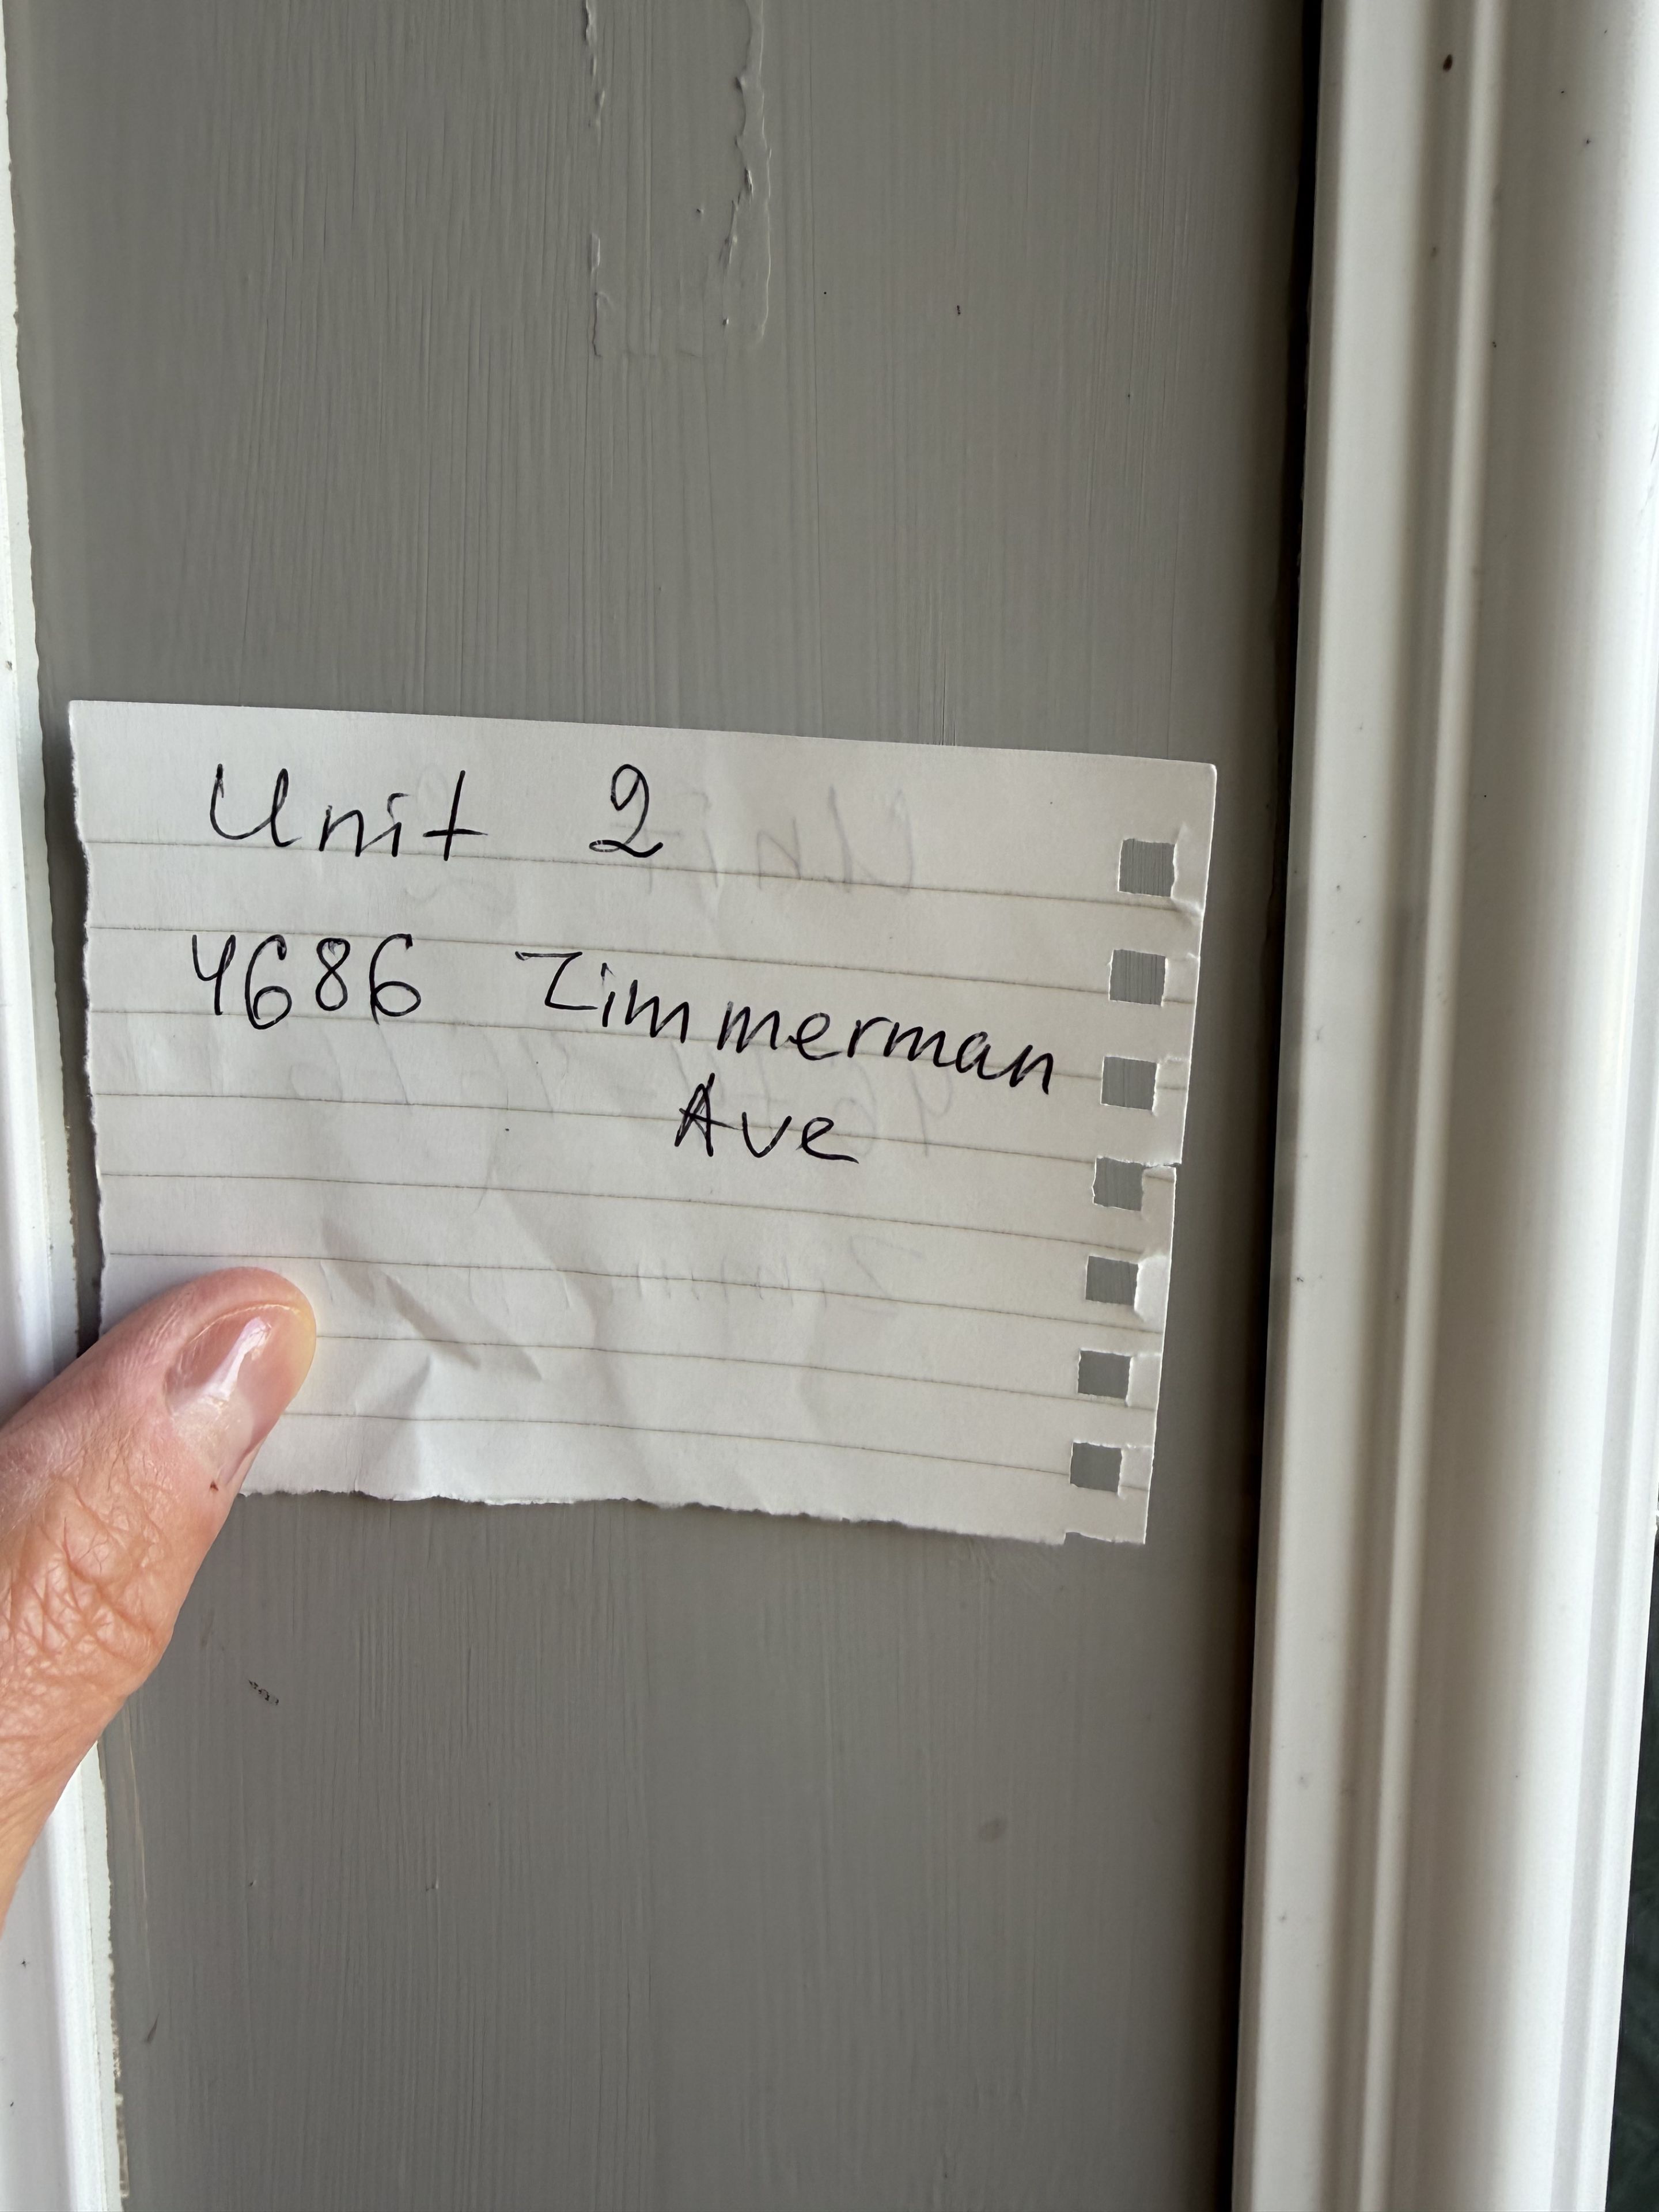 Unit 2
4686 Zimmerman
Ave